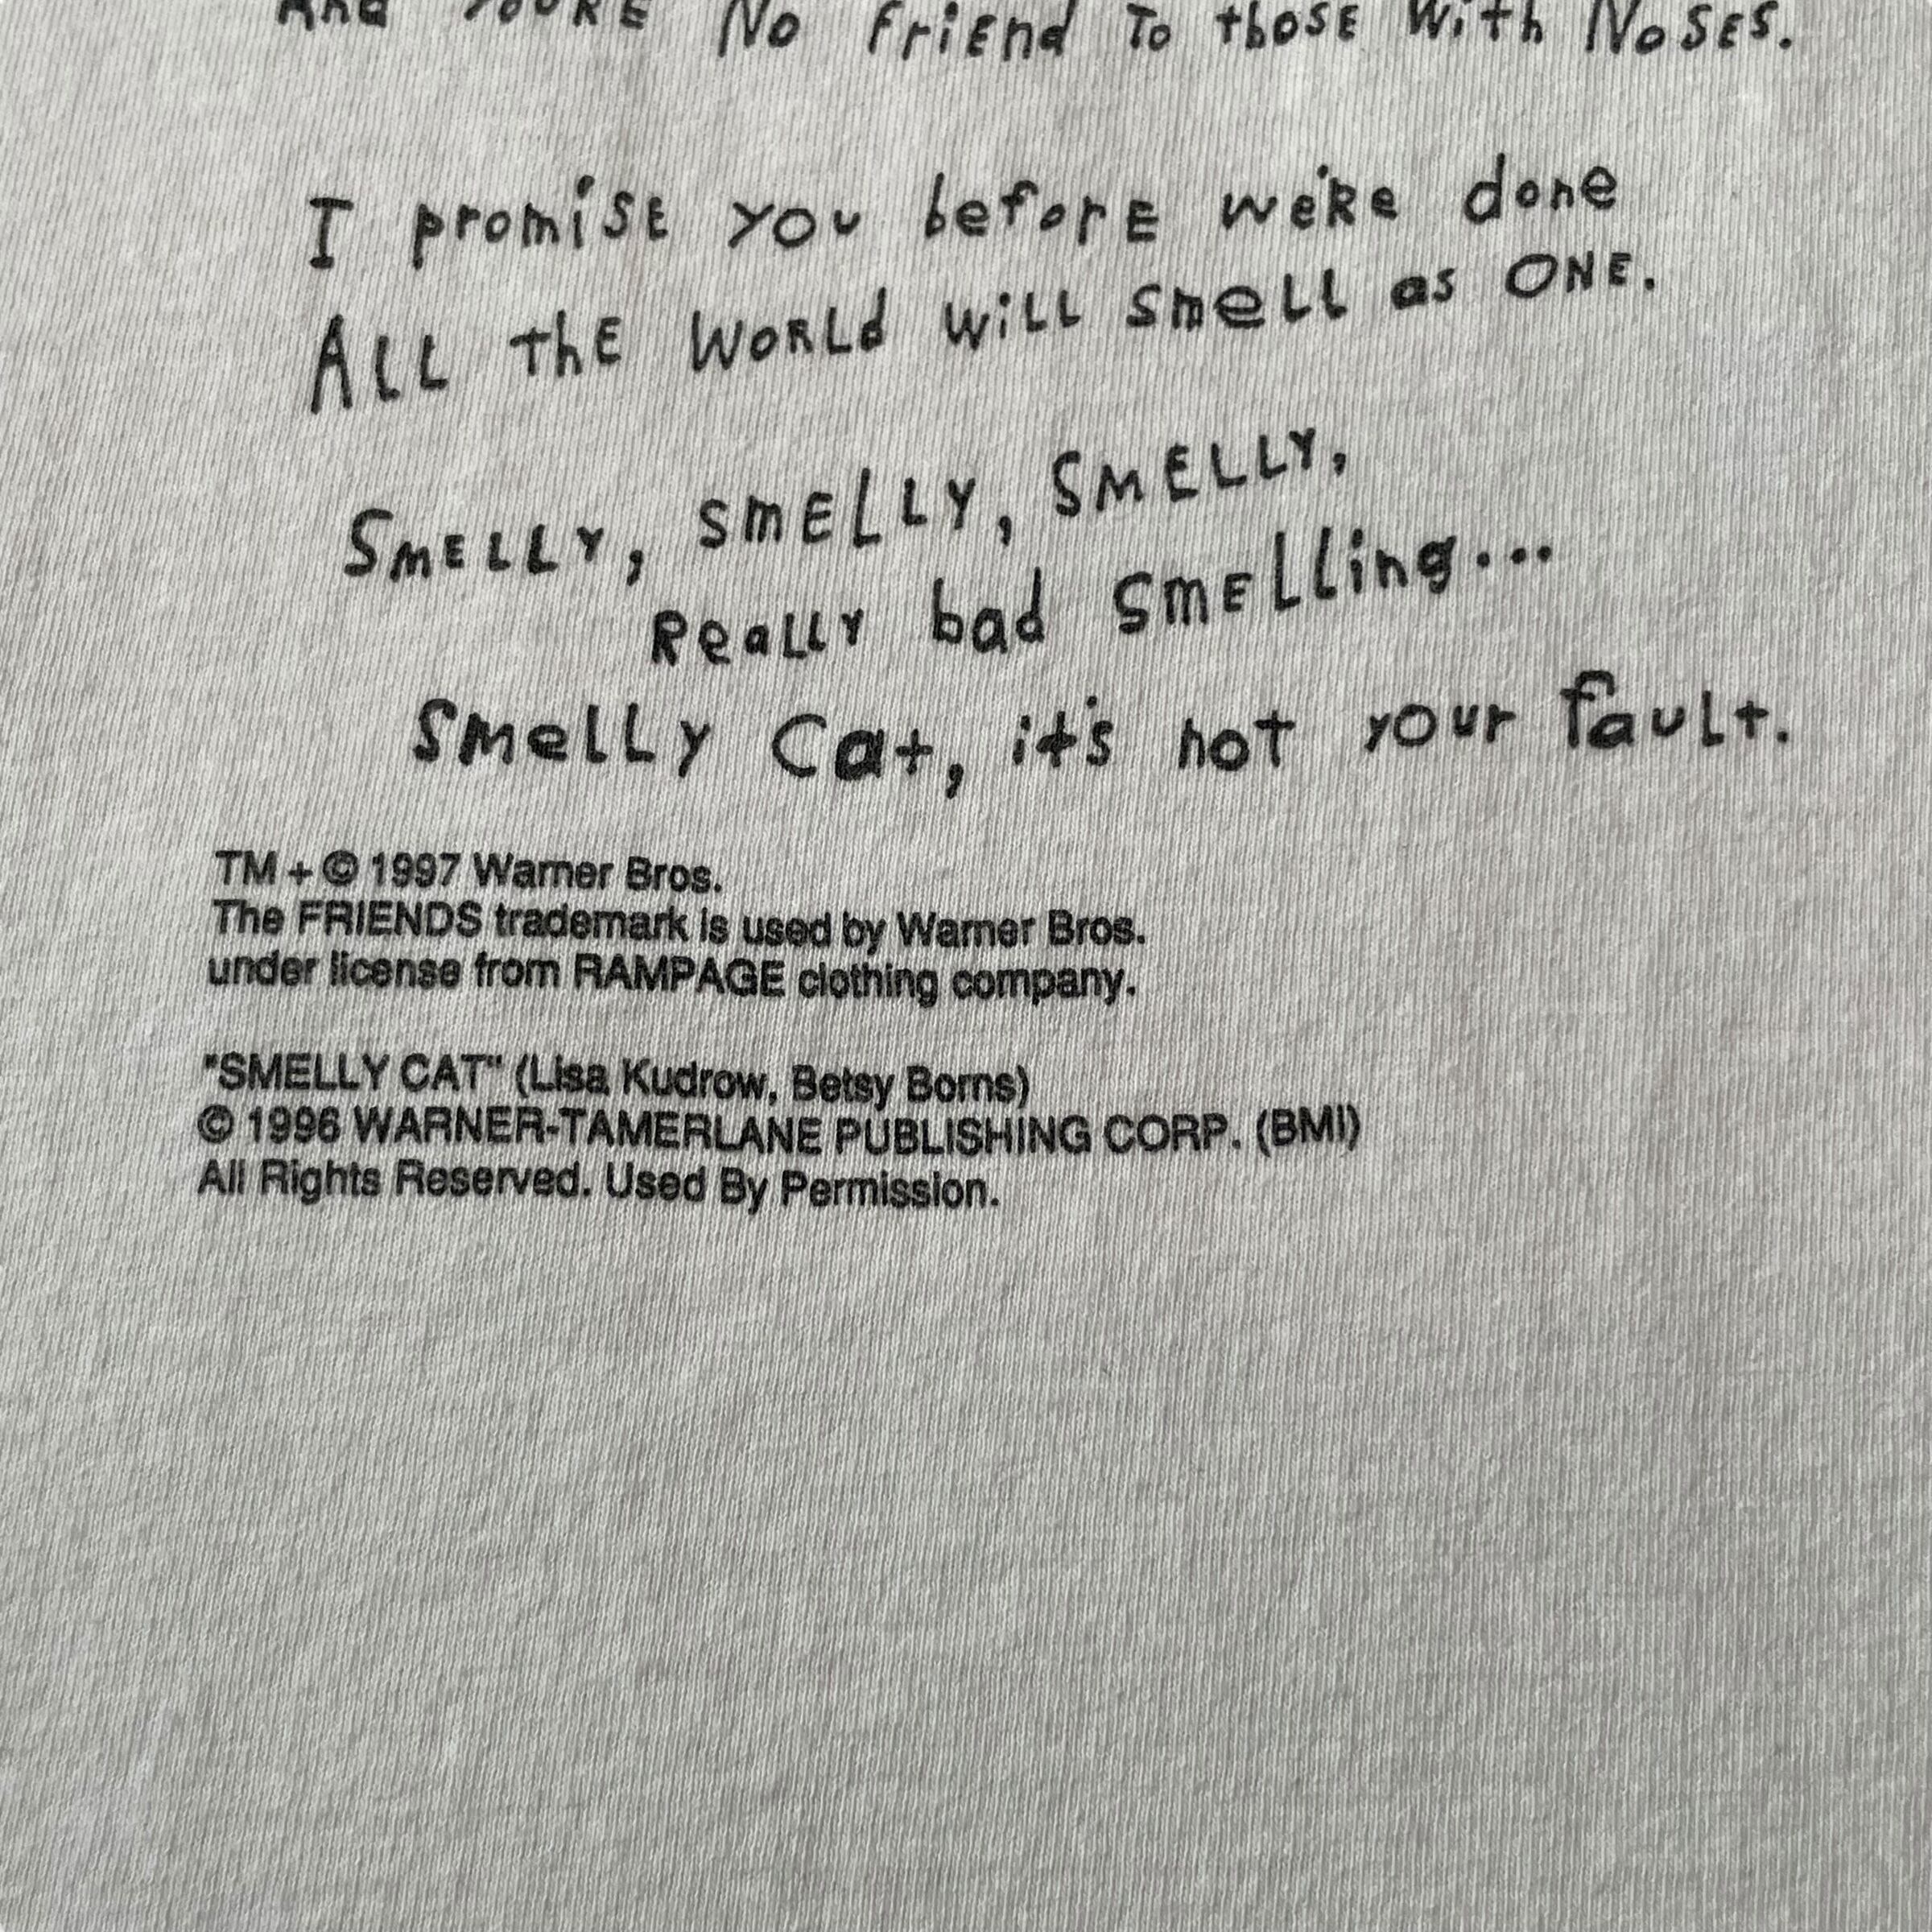 And YOU'RE No FriEnd To thosE With NoSES.
I promiSE you beforE we'Re done
ALL thE WORLd WiLL smell as ONE.
SMELLY, SmELLY, SMELLY,
ReaLLY bad SmELLing...
SmelLy Cat, it's not your fault.
TM + © 1997 Warner Bros.
The FRIENDS trademark is used by Warner Bros.
under license from RAMPAGE clothing company.
"SMELLY CAT" (Lisa Kudrow, Betsy Borns)
© 1996 WARNER-TAMERLANE PUBLISHING CORP. (BMI)
All Rights Reserved. Used By Permission.